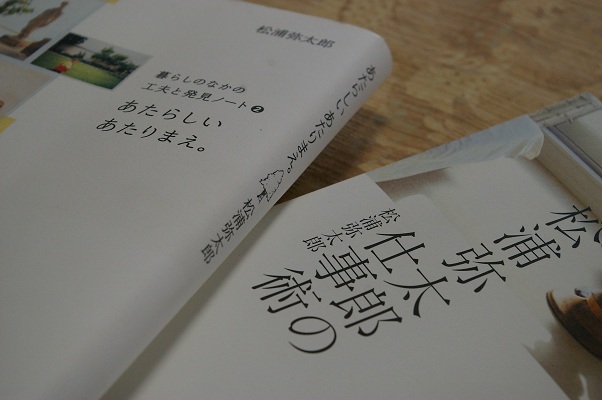 松浦弥太郎
暮らしのなかの
工夫と発見ノート2
あたらしい
あたりまえ。
あたらしいあたりまえ。
松浦弥太郎
松浦弥太郎の
仕事術
松浦弥太郎